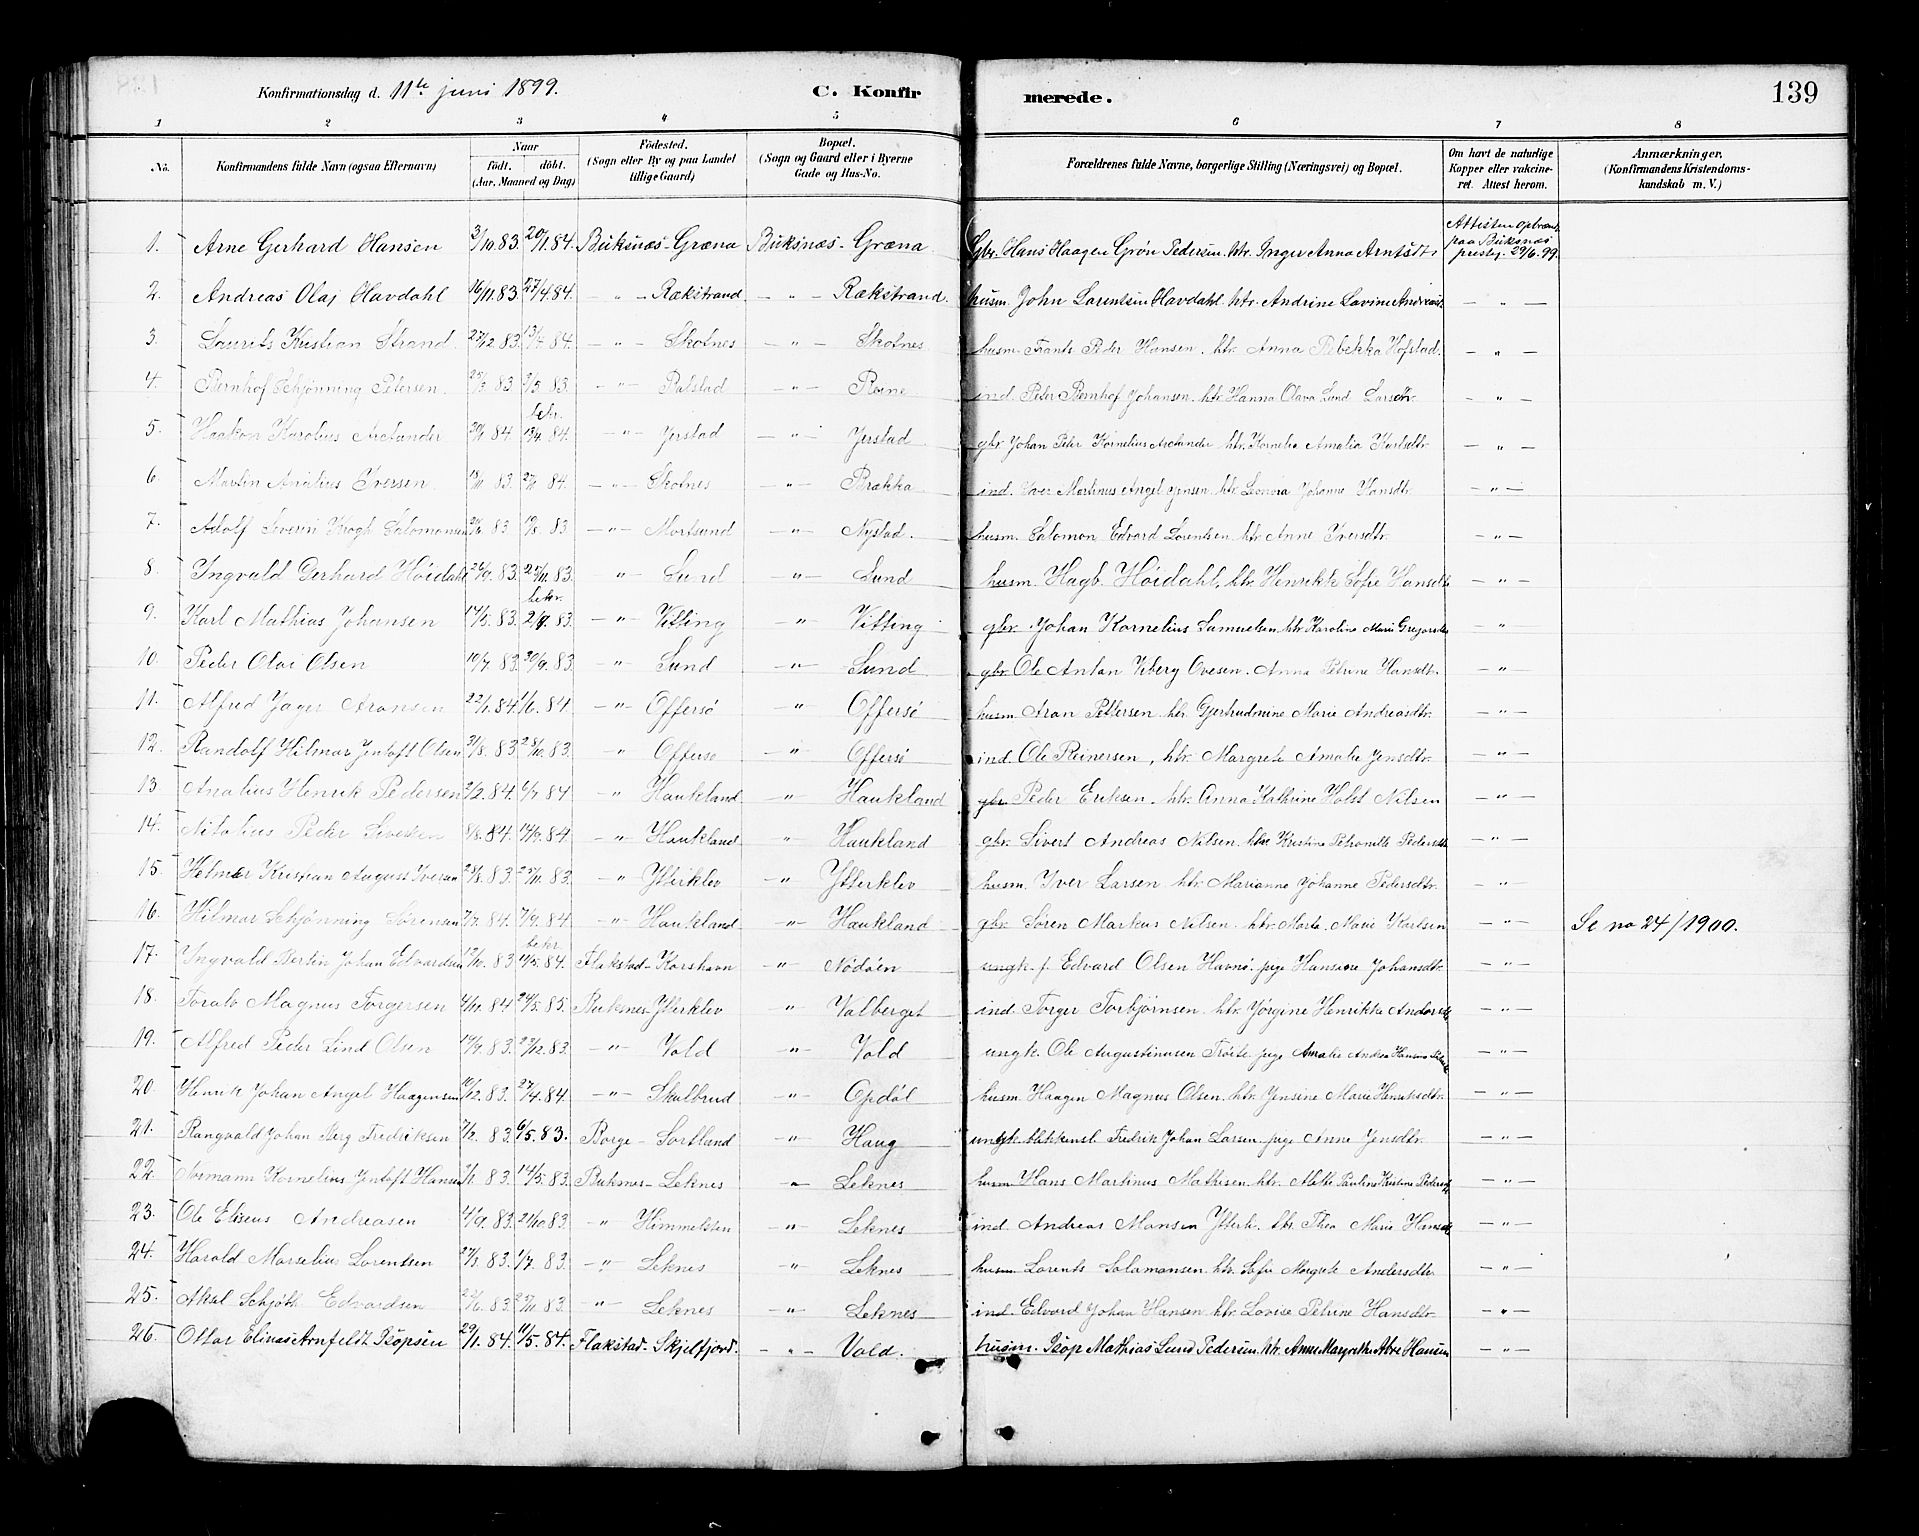 Konfirmationsdag d. 11te juni 1899. C. Konfirmerede. 139
1 2 3 4 5 6 7 8
No. Konfirmandens fulde Navn (ogsaa Efternavn) Naar født. døbt. (Aar, Maaned og Dag) Fødested. (Sogn eller By og paa Landet tillige Gaard) Bopæl. (Sogn og Gaard eller i Byerne Gade og Hus-No. Forældrenes fulde Navne, borgerlige Stilling (Næringsvei) og Bopæl. Om havt de naturlige Kopper eller vaccineret. Attest herom. Anmærkninger. (Konfirmandens Kristendomskundskab m. V.)
1. Arne Gerhard Hansen 3/10.83. 20/1.84. Buksnæs-Græna Buksnæs-Græna Gbr. Hans Haagen Grön Pedersen. htr. Inger Anna Arntsdtr. Attisten opbev. paa Buksnæs presteg. 29/6.99.
2. Andreas Olaj Havdahl 16/11.83. 27/4.84. -"- Rækstrand -"- Rækstrand. husm. John Larentsen Havdahl. htr. Andrine Lavine Andreasd. -"-
3. Laurits Kristian Strand 23/12.83. 13/7.84. -"- Skotnes -"- Skotnes husm. Frants Peder Hansen. htr. Anna Rebekka Hofstad. -"-
4. Bernhof Schjønning Petersen. 25/3.83 3/5.83. -"- Balstad -"- Reine ind. Peter Bernhof Johansen. htr. Hanna Olava Lund Larsdtr. -"-
5. Haakon Karolius Arctander 20/1.84. bekr. 13/4.84. -"- Jerstad -"- Jerstad gbr. Johan Peder Kornelius Arctander htr. Kornelia Amalia Karlsdtr. -"-
6. Martin Anilius Iversen. 18/11.83. 27/1.84. -"- Skotnes -"- Brækka ind. Iver Martinus Angel Jensen. htr. Leonora Johanne Hansdtr. -"-
7. Adolf Severin Krogh Salomonsen 21/6.83 19/8.83. -"- Mortsund -"- Nystad. husm. Salomon Edvard Lorentsen. htr. Anne Iversdtr. -"-
8. Ingvald Gerhard Höidahl 26/9.83. 25/11.83. -"- Lund -"- Lund husm. Hagb. Höidahl, htr. Henrikk Sofie Hansdtr -"-
9. Karl Mathias Johansen 14/5.83 bekr. 2/9.83. -"- Vitting -"- Vitting gbr. Johan Kornelius Samuelsen htr. Karoline Marie Gregorsdtr -"-
10. Peder Olai Olsen 10/7.83. 30/9.83. -"- Lund -"- Lund gbr. Ole Antan Viberg Ovesen. Anna Petrine Hansdtr. -"-
11. Alfred Jager Aronsen 22/1.84. 1/6.84 -"- Offersø -"- Offersø husm Aron Pettersen. htr. Gjertrudmine Marie Andreasdtr. -"-
12. Randolf Hilmar Jentoft Olsen 31/8.83. 28/10.83. -"- Offersø -"- Offersø ind. Ole Reinersen, htr. Margrete Amalie Jensdtr. -"-
13 Analius Henrik Pedersen 3/2.84. 6/7.84 -"- Haukland -"- Haukland gbr Peder Eriksen. htr. Anna Kathrine Holst Nilsen -"-
14. Nitolius Peder Sivertsen 8/8.84. 14/9.84 -"- Haukland -"- Haukland gbr. Sivert Andreas Nilsen htr Kristine Petronille Pedersdtr -"-
15. Helmer Kristian August Iversen 28/8.83. 25/11.83. -"- Ytterklev -"- Ytterklev husm. Iver Larsen htr. Marianne Johanne Pedersdtr. -"-
16. Hilmar Schjønning Sørensen 7/7.84. 7/9.84 -"- Haukland -"- Haukland gbr Sören Markus Nilsen. htr. Marta Marie Karlsen -"- Se no 24/1900.
17. Ingvald Bertin Johan Edvardsen 12/10.83 bekr 11/5.84. Flakstad-Korshavn -"- Nödöen ungk. f. Edvard Olsen Havnö. pige Hansine Johansdtr. -"-
18. Toralv Magnus Torgersen 4/11.84 24/5.85. Buksnes-Ytterklev -"- Valberget ind. Torger Torbjørnsen. htr. Jörgine Henrikke Andersdtr -"-
19. Alfred Peder Lind Olsen 19/9.83. 23/12.83. -"- Vold -"- Vold ungk. Ole Augustinusen Tröite. pige Amalie Andrea Hansine -"-
20. Henrik Johan Angel Haagensen 10/12.83. 27/4.84. -"- Skulbrud -"- Opdöl husm. Haagen Magnus Olsen. htr. Jensine Marie Henriksdtr. -"-
21. Rangvald Johan Berg Fredriksen 7/2.83. 6/5.83. Borge-Sortland -"- Haug ungk. Fredrik Johan Larsen. pige Anne Jensdtr. -"-
22. Normann Kornelius Jentoft Hansen 3/1.83. 14/5.83. Buksnes-Leknes -"- Leknes husm Hans Martinus Mathisen. htr. Mette Pauline Kristine Pedersdtr -"-
23. Ole Elisens Andreasen 4/9.83. 21/10.83. -"- Himmelsten -"- Leknes ind. Andreas Monsen Ytterk. htr. Thea Marie Hansdtr -"-
24. Harald Marselius Lorentsen 27/3.83. 1/7.83. -"- Leknes -"- Leknes husm Lorents Salamonsen. htr. Sofie Margrete Andersdtr -"-
25. Aksel Schjøth Edvardsen 22/6.83. 25/11.83. -"- Leknes -"- Leknes ind. Edvard Johan Hansen htr. Lovise Petrine Hansdtr. -"-
26. Ottar Elinas Arnfeldt Isopsen 29/1.84. 11/5.84. Flakstad-Skjelfjord. -"- Vold. husm. Isop Mathias Lund Pedersen. htr. Anne Margrethe Hansen -"-